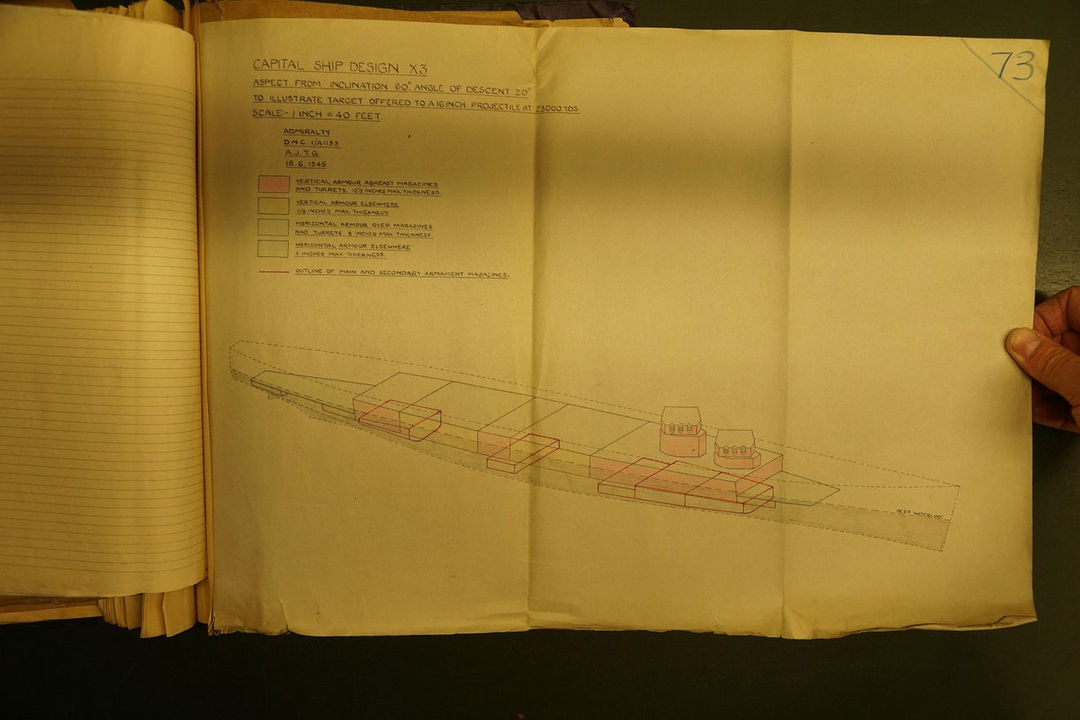 73
CAPITAL SHIP DESIGN X3
ASPECT FROM INCLINATION 60° ANGLE OF DESCENT 20°
TO ILLUSTRATE TARGET OFFERED TO A 16 INCH PROJECTILE AT 23000 YDS.
SCALE:- 1 INCH = 40 FEET
ADMIRALTY
D.N.C. 1/A1153
A.J.T.G.
18.6.1945
VERTICAL ARMOUR ABREAST MAGAZINES
AND TURRETS. 12½ INCHES MAX THICKNESS.
VERTICAL ARMOUR ELSEWHERE
INCHES MAX THICKNESS
HORIZONTAL ARMOUR OVER MAGAZINES
AND TURRETS 6 INCHES MAX THICKNESS
HORIZONTAL ARMOUR ELSEWHERE
4 INCHES MAX THICKNESS.
OUTLINE OF MAIN AND SECONDARY ARMAMENT MAGAZINES.
DEEP WATERLINE